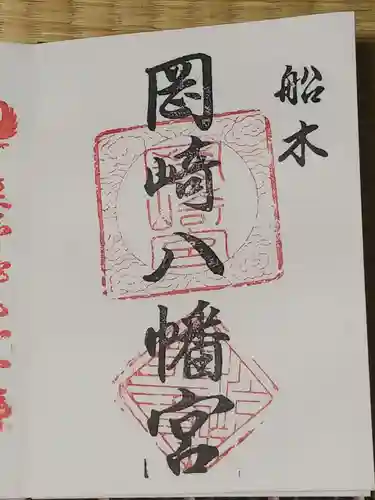 船木
岡崎八幡宮